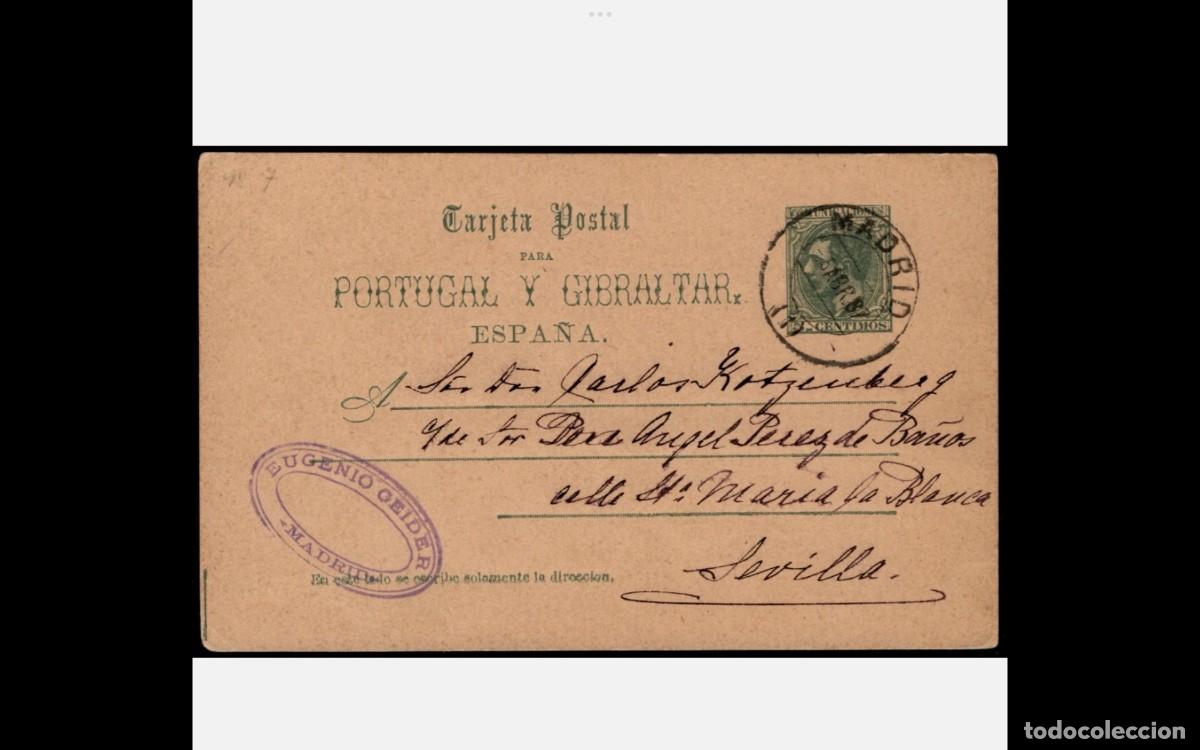 Nº 7
Tarjeta Postal
PARA
PORTUGAL Y GIBRALTAR.
ESPAÑA.
COMUNICACIONES
5 CENTIMOS
MADRID
ABR 87
A Sor Don Carlos Kotzenberg
c/de Sor Don Angel Perez de Baños
calle Sta. Maria la Blanca
Sevilla.
EUGENIO GEIDER
MADRID
En este lado se escribe solamente la direccion.
todocoleccion